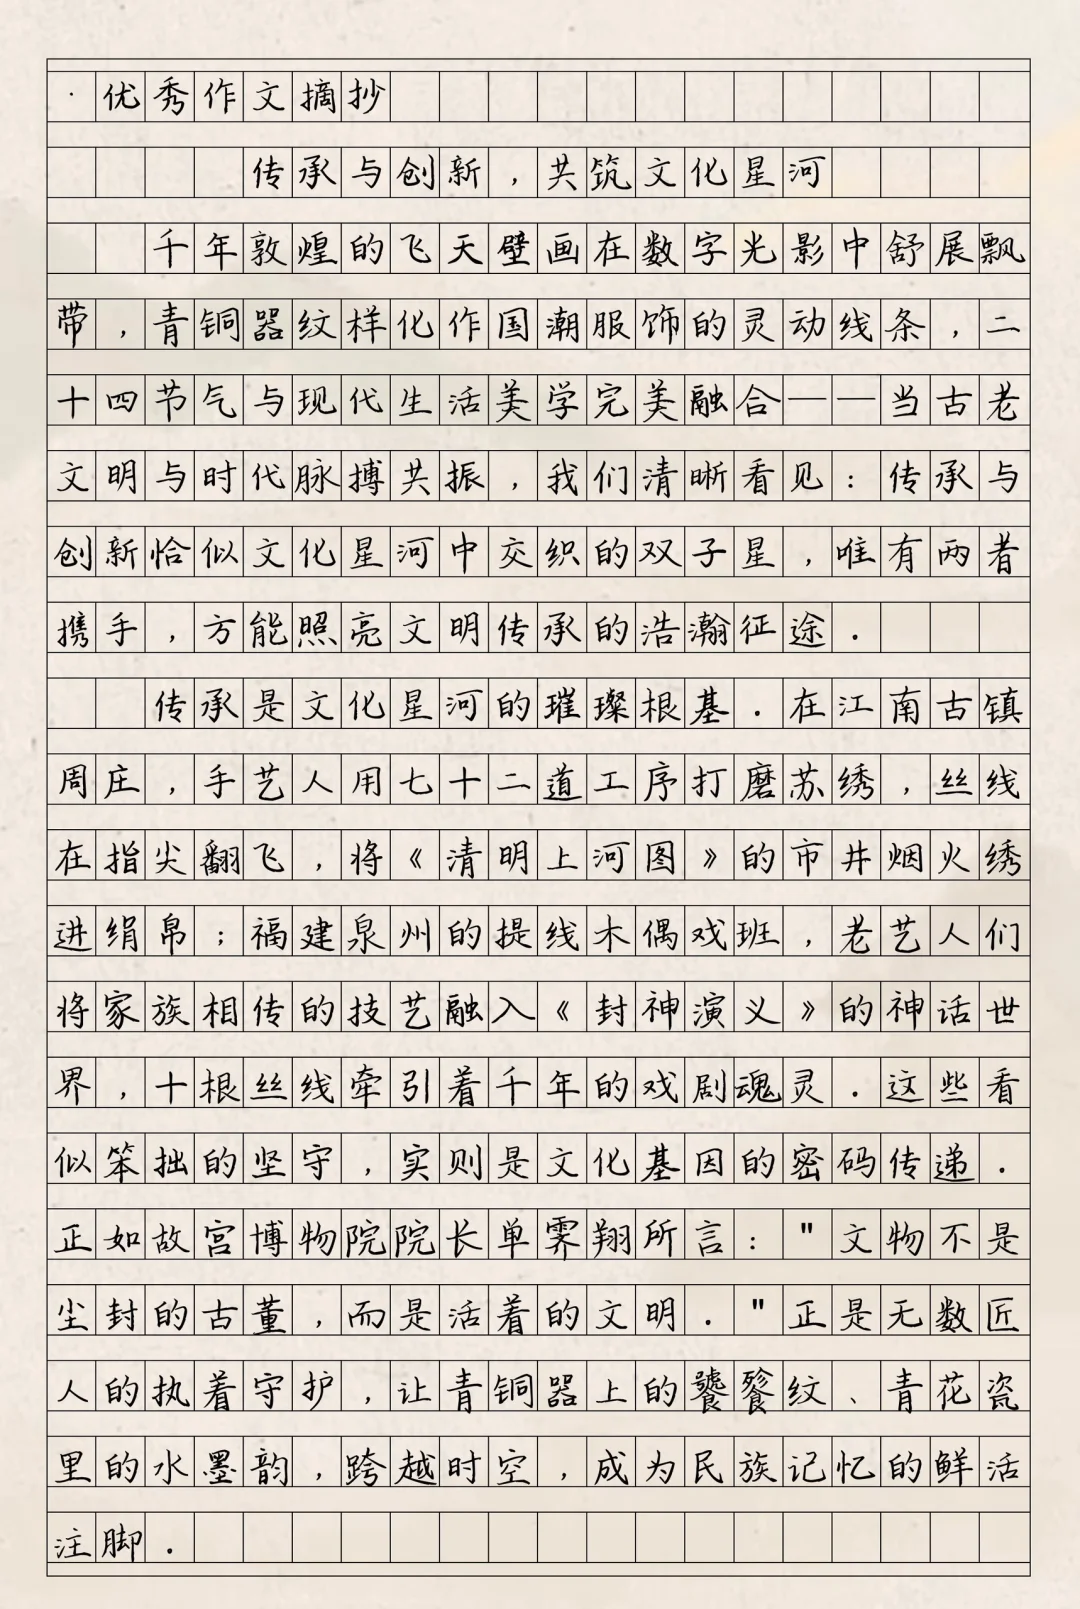 ·优秀作文摘抄
传承与创新，共筑文化星河
千年敦煌的飞天壁画在数字光影中舒展飘
带，青铜器纹样化作国潮服饰的灵动线条，二
十四节气与现代生活美学完美融合——当古老
文明与时代脉搏共振，我们清晰看见：传承与
创新恰似文化星河中交织的双子星，唯有两者
携手，方能照亮文明传承的浩瀚征途．
传承是文化星河的璀璨根基．在江南古镇
周庄，手艺人用七十二道工序打磨苏绣，丝线
在指尖翻飞，将《清明上河图》的市井烟火绣
进绢帛；福建泉州的提线木偶戏班，老艺人们
将家族相传的技艺融入《封神演义》的神话世
界，十根丝线牵引着千年的戏剧魂灵．这些看
似笨拙的坚守，实则是文化基因的密码传递．
正如故宫博物院院长单霁翔所言："文物不是
尘封的古董，而是活着的文明．"正是无数匠
人的执着守护，让青铜器上的饕餮纹、青花瓷
里的水墨韵，跨越时空，成为民族记忆的鲜活
注脚．